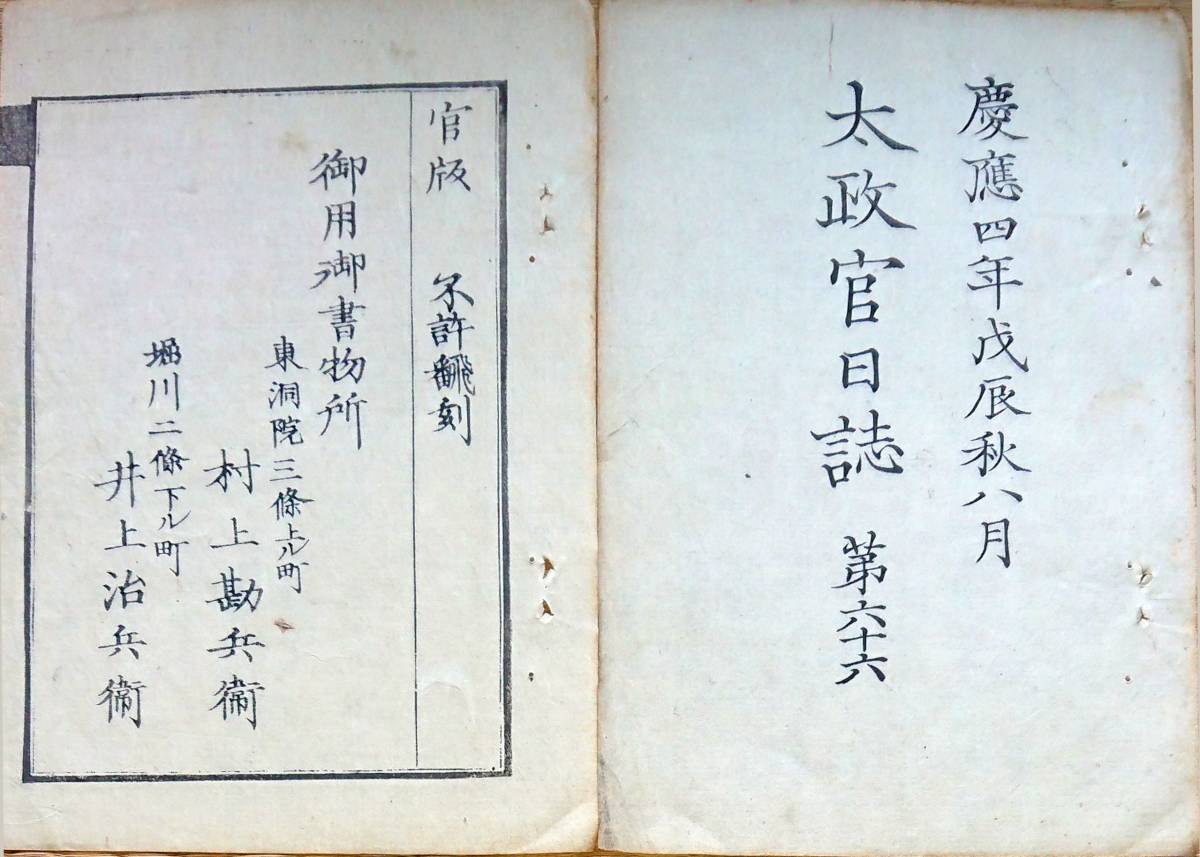 慶應四年戊辰秋八月
太政官日誌 第六十六
官版 不許翻刻
御用御書物所
東洞院三條上ル町
村上勘兵衞
堀川二條下ル町
井上治兵衞